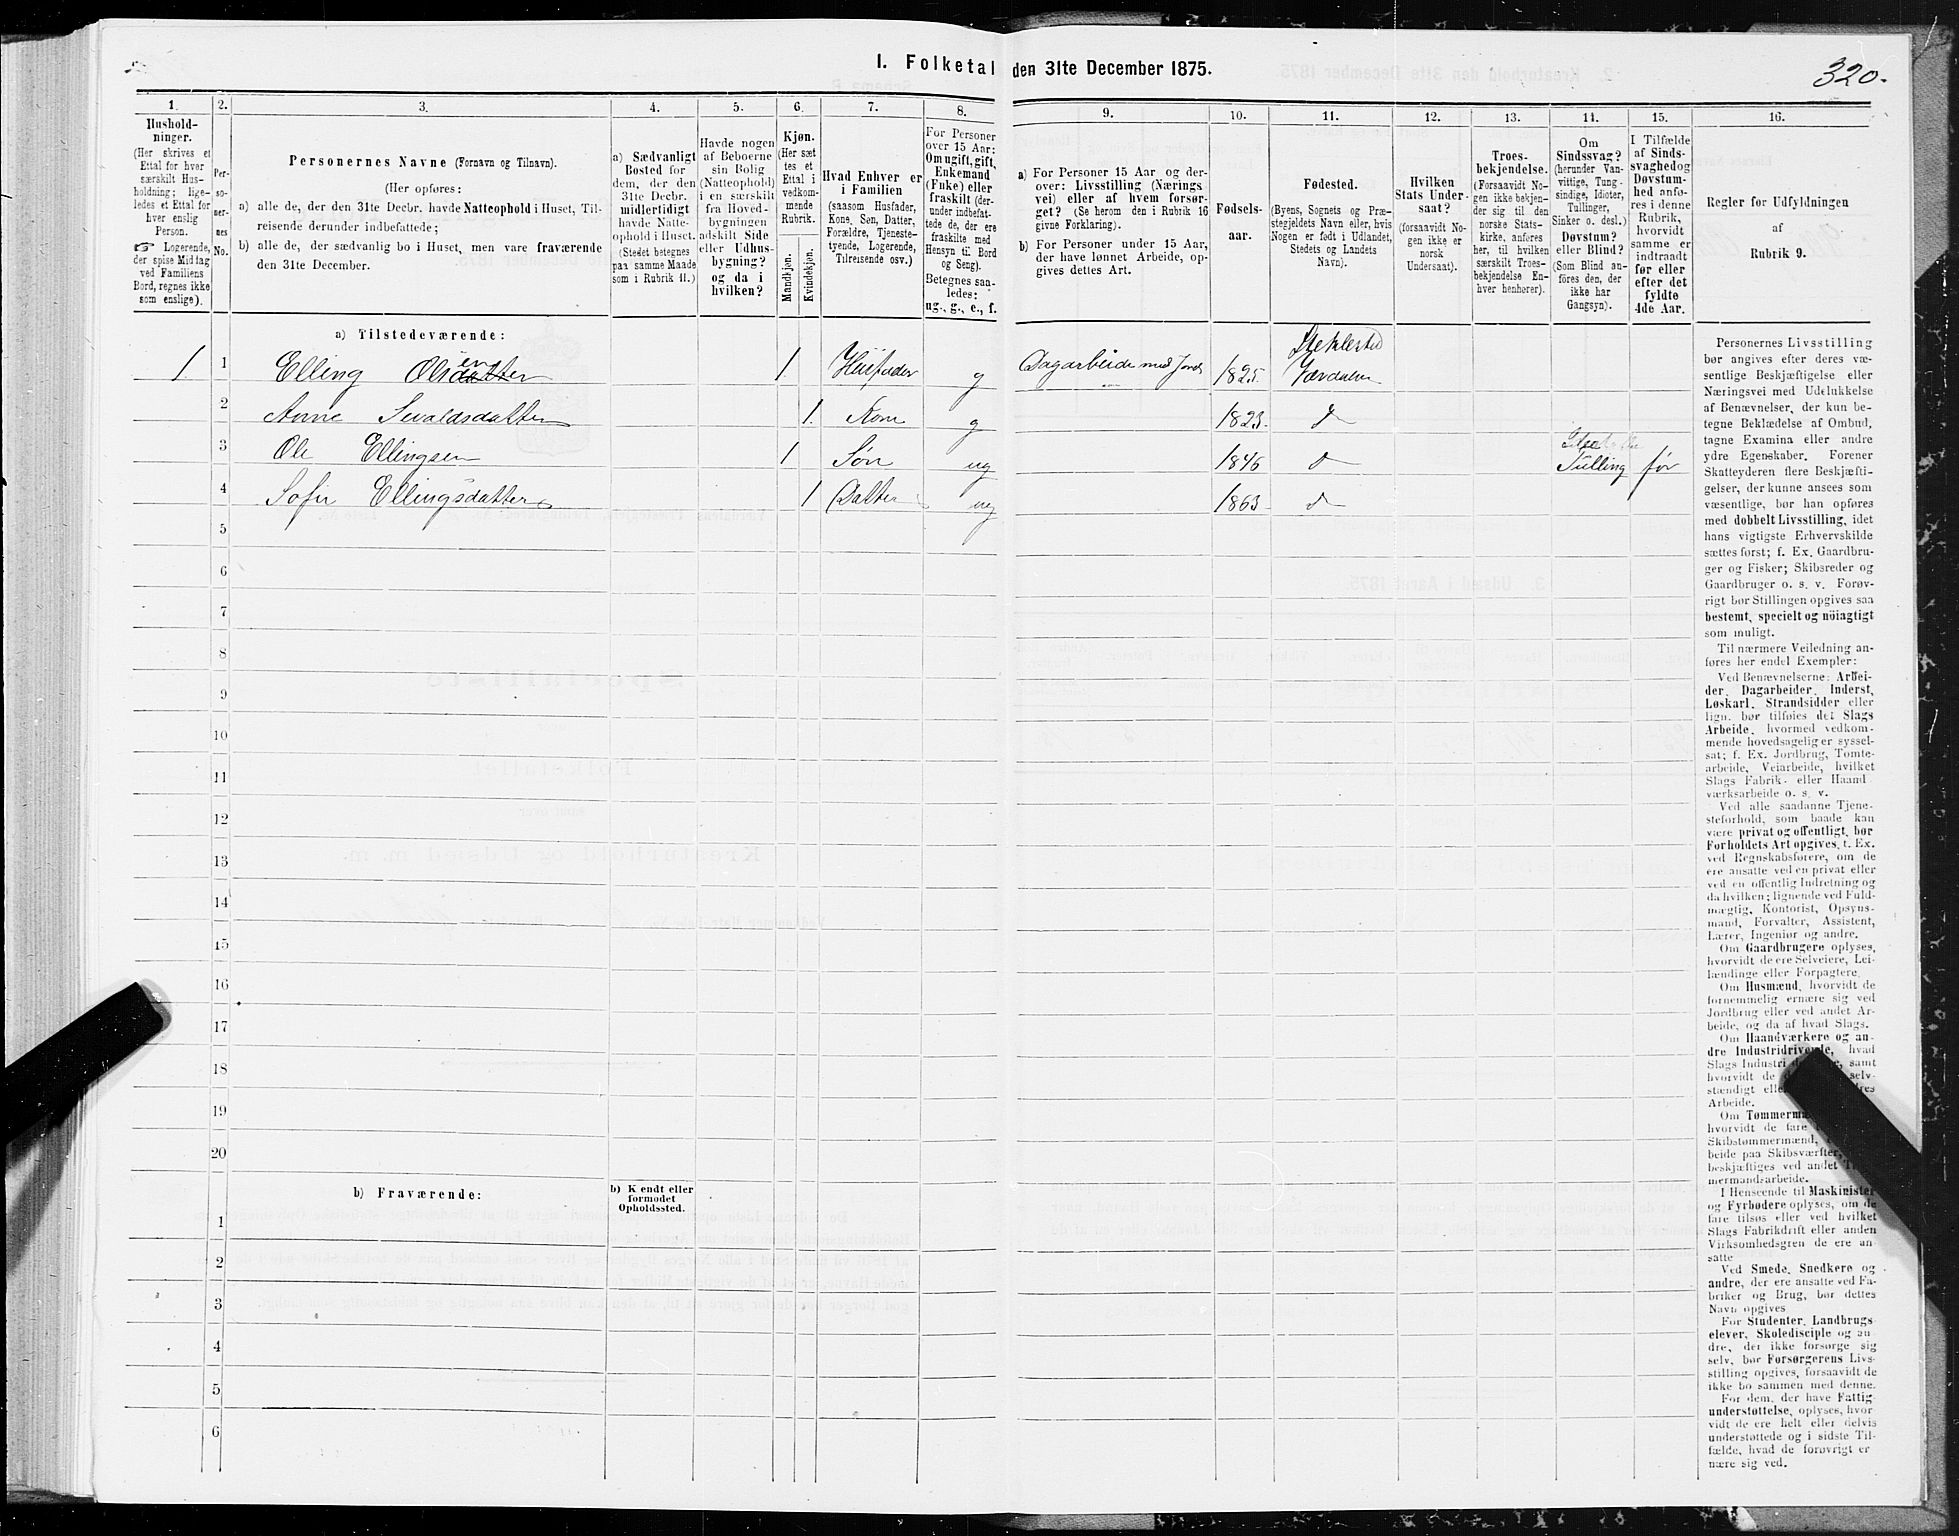 I. Folketal den 31te December 1875.
320.
1.
Hushold-
ninger.
(Her skrives et
Ettal for hver
særskilt Hus-
holdning; lige-
ledes et Ettal for
hver enslig
Person.
☞ Logerende,
der spise Middag
ved Familiens
Bord, regnes ikke
som enslige).
2.
Per-
so-
ner-
nes
No.
3.
Personernes Navne (Fornavn og Tilnavn).
(Her opføres:
a) alle de, der den 31te Decbr. havde Natteophold i Huset, Til-
reisende derunder indbefattede;
b) alle de, der sædvanlig bo i Huset, men vare fraværende
den 31te December.
4.
a) Sædvanligt
Bosted for
dem, der den
31te Decbr.
midlertidigt
havde Natte-
ophold i Huset.
(Stedet betegnes
paa samme Maade
som i Rubrik 11.)
5.
Havde nogen
af Beboerne
sin Bolig
(Natteophold)
i en særskilt
fra Hoved-
bygningen
adskilt Side
eller Udhus-
bygning?
og da i
hvilken?
6.
Kjøn.
(Her sæt
tes et
Ettal i
vedkom-
mende
Rubrik.
Mandkjøn.
Kvindekjøn.
7.
Hvad Enhver er
i Familien
(saasom Husfader,
Kone, Søn, Datter,
Forældre, Tjeneste-
tyende, Logerende,
Tilreisende osv.)
8.
For Personer
over 15 Aar:
Om ugift, gift,
Enkemand
(Enke) eller
fraskilt (der-
under indbefat-
tede de, der ere
fraskilte med
Hensyn til Bord
og Seng).
Betegnes saa-
ledes:
ug., g., e., f.
9.
a) For Personer 15 Aar og der-
over: Livsstilling (Nærings
vei) eller af hvem forsør-
get? (Se herom den i Rubrik 16
givne Forklaring).
b) For Personer under 15 Aar,
der have lønnet Arbeide, op-
gives dettes Art.
10.
Fødsels-
aar.
11.
Fødested.
(Byens, Sognets og Præ-
stegjeldets Navn eller, hvis
Nogen er født i Udlandet,
Stedets og Landets
Navn).
12.
Hvilken
Stats Under-
saat?
(forsaavidt No-
gen ikke er
norsk
Undersaat).
13.
Troes-
bekjendelse.
(Forsaavidt No-
gen ikke bekjen-
der sig til den
norske Stats-
kirke, anføres
her, til hvilken
særskilt Troes-
bekjendelse En-
hver henhører).
14.
Om
Sindssvag?
(herunder Van-
vittige, Tung-
sindige, Idioter,
Tullinger,
Sinker o. desl.)
Døvstum?
eller Blind?
(Som Blind an-
føres den, der
ikke har
Gangsyn).
15.
I Tilfælde
af Sinds-
svaghed og
Døvstum-
hed anfø-
res i denne
Rubrik,
hvorvidt
samme er
indtraadt
før eller
efter det
fyldte
4de Aar.
16.
Regler for Udfyldningen
af
Rubrik 9.
a) Tilstedeværende:
1 1 Elling Olsdatter en 1 Husfader g Dagarbeide med Jord 1825. Stiklestad Værdalen
2 Anne Sivaldsdatter 1. Kone g 1823. d
3 Ole Ellingsen 1 Søn ug 1846 d Tulling før
4 Sofie Ellingsdatter 1 Datter ug 1863 d
5
6
7
8
9
10
11
12
13
14
15
16
17
18
19
20
b) Fraværende:
b) Kendt eller
formodet
Opholdssted.
1
2
3
4
5
6
Personernes Livsstilling
bør angives efter deres væ-
sentlige Beskjæftigelse eller
Næringsvei med Udelukkelse
af Benævnelser, der kun be-
tegne Beklædelse af Ombud,
tagne Examina eller andre
ydre Egenskaber. Forener
Skatteyderen flere Beskjæfti-
gelser, der kunne ansees som
væsentlige, bør han opføres
med dobbelt Livsstilling, idet
hans vigtigste Erhvervskilde
sættes først; f. Ex. Gaardbru-
ger og Fisker; Skibsreder og
Gaardbruger o. s. v. Forøv-
rigt bør Stillingen opgives saa
bestemt, specielt og nöiagtigt
som muligt.
Til nærmere Veiledning an-
føres her endel Exempler:
Ved Benævnelserne: Arbei-
der, Dagarbeider, Inderst,
Løskarl, Strandsidder eller
lign. bør tilføies det Slags
Arbeide, hvormed vedkom-
mende hovedsagelig er syssel-
sat; f. Ex. Jordbrug, Tomte-
arbeide, Veiarbeide, hvilket
Slags Fabrik- eller Haand
værksarbeide o. s. v.
Ved alle saadanne Tjene-
steforhold, som baade kan
være privat og offentligt, bør
Forholdets Art opgives, f. Ex.
ved Regnskabsførere, om de
ere ansatte ved en privat eller
ved en offentlig Indretning og
da hvilken; lignende ved Fuld-
mægtig, Kontorist, Opsyns-
mand, Forvalter, Assistent,
Lærer, Ingeniør og andre.
Om Gaardbrugere oplyses,
hvorvidt de ere Selveiere, Lei-
lændinge eller Forpagtere.
Om Husmænd, hvorvidt de
fornemmelig ernære sig ved
Jordbrug eller ved andet Ar-
beide, og da af hvad Slags.
Om Haandværkere og an-
dre Industridrivende, hvad
Slags Industri samt
hvorvidt de selv-
stændigt
Arbeide.
Om
hvorvidt de fare
Skibstømmermænd,
beide paa Skibsværfter,
beskjæftiges ved andet
mermandsarbeide.
I Henseende til Maskinister
og Fyrbødere oplyses, om de
fare tilsøs eller ved hvilket
Slags Fabrikdrift eller anden
Virksomhedsgren de ere an-
satte
Ved Smede, Snedkere og
andre, der ere ansatte ved Fa-
briker og Brug, bør dettes
Navn opgives
For Studenter, Landbrugs-
elever, Skoledisciple og an-
dre, der ikke forsørge sig
selv, bør Forsørgerens Livs-
stilling opgives, forsaavidt de
ikke bo sammen med denne.
For dem, der have Fattig-
understøttelse, oplyses, hvor-
vidt de ere helt eller delvis
understøttede og i sidste Til-
fælde, hvad de forøvrigt er
nære sig ved.